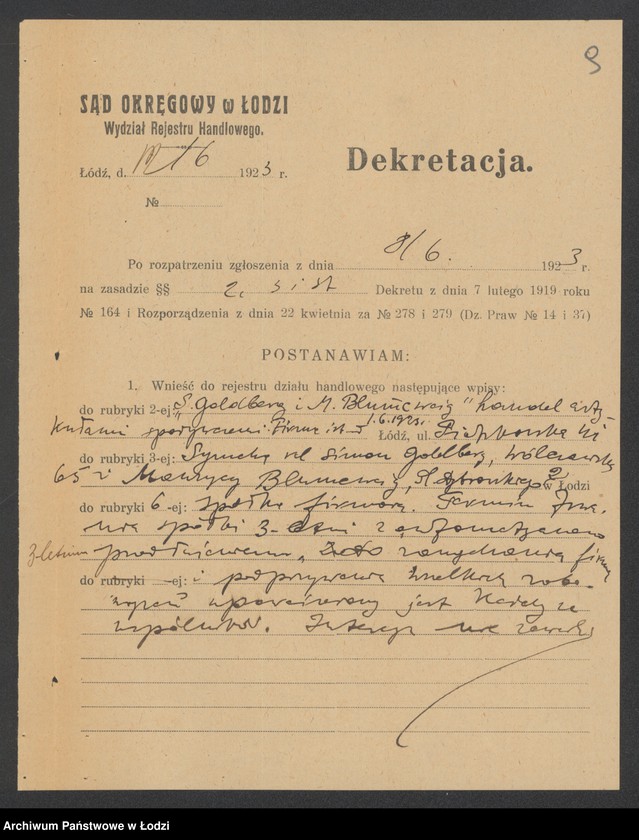 9
SĄD OKRĘGOWY w ŁODZI
Wydział Rejestru Handlowego.
Dekretacja.
Łódź, d. 6 1923 r.
№
Po rozpatrzeniu zgłoszenia z dnia 8/6. 1923 r.
na zasadzie §§ 2, 5 i Dekretu z dnia 7 lutego 1919 roku
№ 164 i Rozporządzenia z dnia 22 kwietnia za № 278 i 279 (Dz. Praw № 14 i 37)
POSTANAWIAM:
1. Wnieść do rejestru działu handlowego następujące wpisy:
do rubryki 2-ej: „S. Goldberg i M. Blumcwajg" handel arty-
kułami spożywczemi. Firma istn. 1.6.1923. Łódź, ul. Piotrkowska
do rubryki 3-ej: Symcha vel Simon Goldberg, Wólczańska
65 i Maurycy Blumcwajg, 2 w Łodzi
do rubryki 6-ej: spółka firmowa. Termin trwa-
nia spółki 3-letni z automatycznem
3-letniem przedłużeniem. firmy
do rubryki -ej: i podpisywania wszelkich zobo-
wiązań upoważniony jest każdy ze
wspólników. Intercyz nie zawarli
Archiwum Państwowe w Łodzi